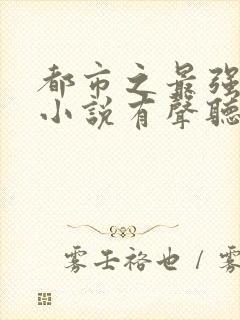 都市之最强
小說有聲聽
雾壬裕也 / 雾